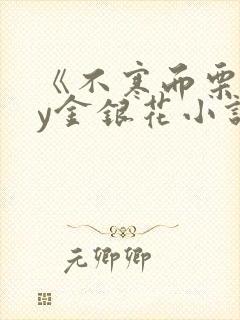 《不寒而栗
y金银花小说
元卿卿